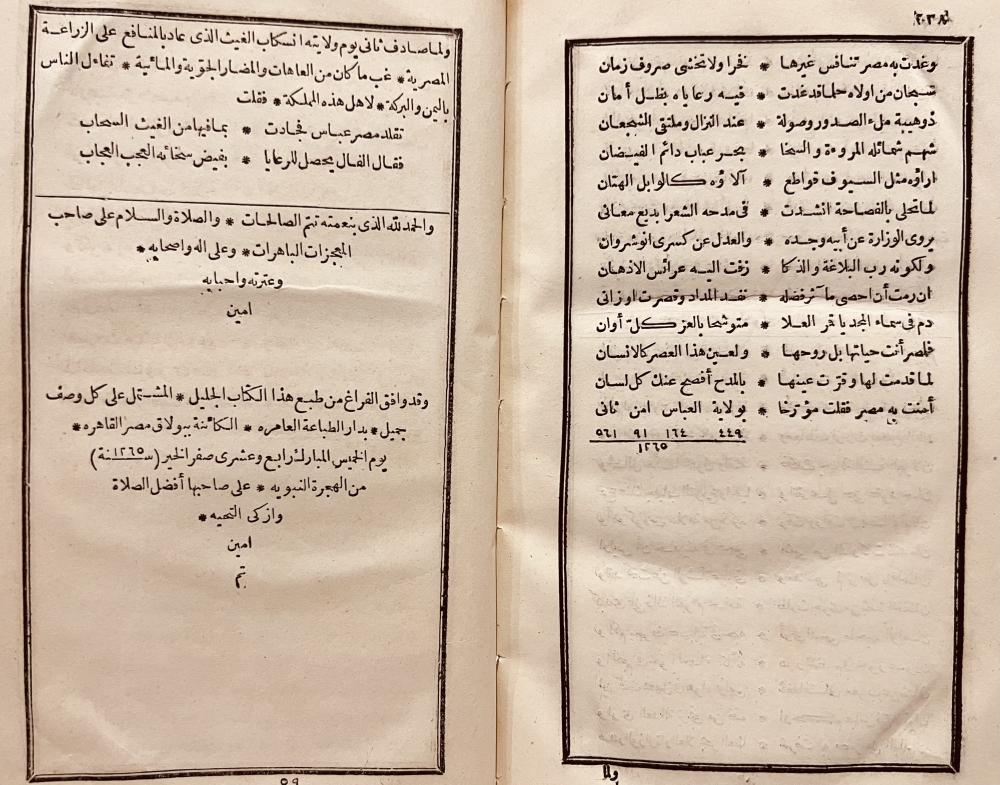 ٢٣٨
وغدت به مصر تنافس غيرها * فخرا ولا تخشى صروف زمان
سبحان من اولاه حلما قد غدت * فيه رعاياه بظل أمان
ذو هيبة ملء الصدور وصولة * عند النزال وملتقى الشجعان
شهم شمائله المروءة والسخا * بحر عباب دائم الفيضان
اراؤه مثل السيوف قواطع * آلاؤه كالوابل الهتان
لما تحلى بالفصاحة انشدت * فى مدحه الشعرا بديع معانى
يروى الوزارة عن أبيه وجده * والعدل عن كسرى انوشروان
ولكونه رب البلاغة والذكا * زفت اليه عرائس الاذهان
ان رمت أن احصى مآثر فضله * نفد المداد وقصرت اوزانى
دم فى سماء المجد يا قمر العلا * متوشحا بالعز كل أوان
فلمصر أنت حياتها بل روحها * ولعين هذا العصر كالانسان
لما قدمت لها وقرت عينها * بالمدح أفصح عنك كل لسان
أمنت به مصر فقلت مؤرخا * بولاية العباس امن ثانى
٤٤٩ ١٦٤ ٩١ ٥٦١
١٢٦٥
ولما
ولما صادف ثانى يوم ولايته انسكاب الغيث الذى عاد بالمنافع على الزراعة
المصرية * غب ما كان من العاهات والمضار الجوية والمائية * تفاءل الناس
باليمن والبركة * لاهل هذه المملكة * فقلت
تقلد مصر عباس فجادت * بما فيها من الغيث السحاب
فقال الفال يحصل للرعايا * بفيض سخائه العجب العجاب
والحمد لله الذى بنعمته تتم الصالحات * والصلاة والسلام على صاحب
المعجزات الباهرات * وعلى اله واصحابه *
وعترته واحبابه
امين
وقد وافق الفراغ من طبع هذا الكتاب الجليل * المشتمل على كل وصف
جميل * بدار الطباعة العامره * الكائنة ببولاق مصر القاهره *
يوم الخميس المبارك رابع وعشرى صفر الخير (سنة ١٢٦٥)
من الهجرة النبويه * على صاحبها أفضل الصلاة
وازكى التحيه *
امين
تم
٥٩